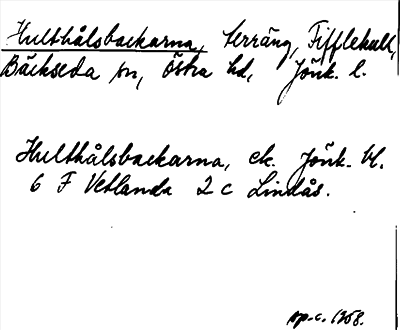 Hulthålsbackarna, terräng, Fifflekull,
Bäckseda sn, Östra hd, Jönk. l.
Hulthålsbackarna, ek. Jönk. bl.
6 F Vetlanda 2 c Lindås.
op.c. 1958.